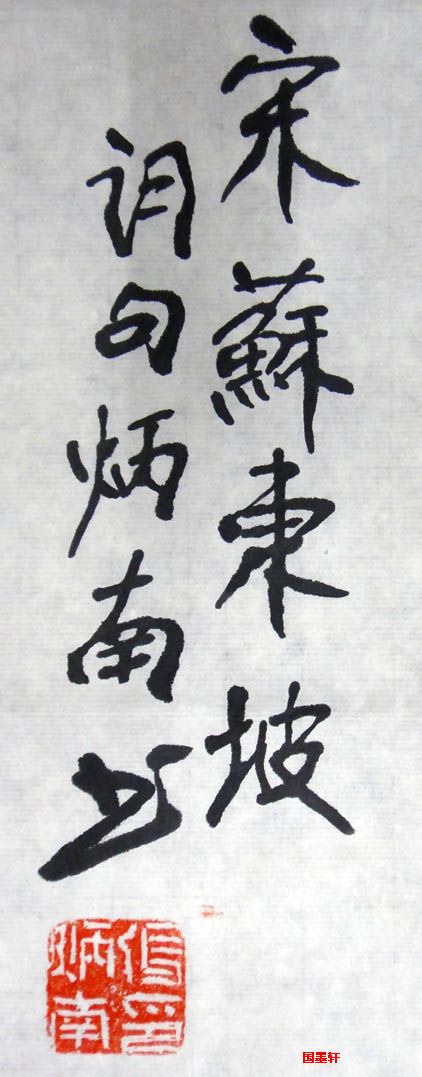 宋蘇東坡
词句炳南书
印
炳南
国墨轩